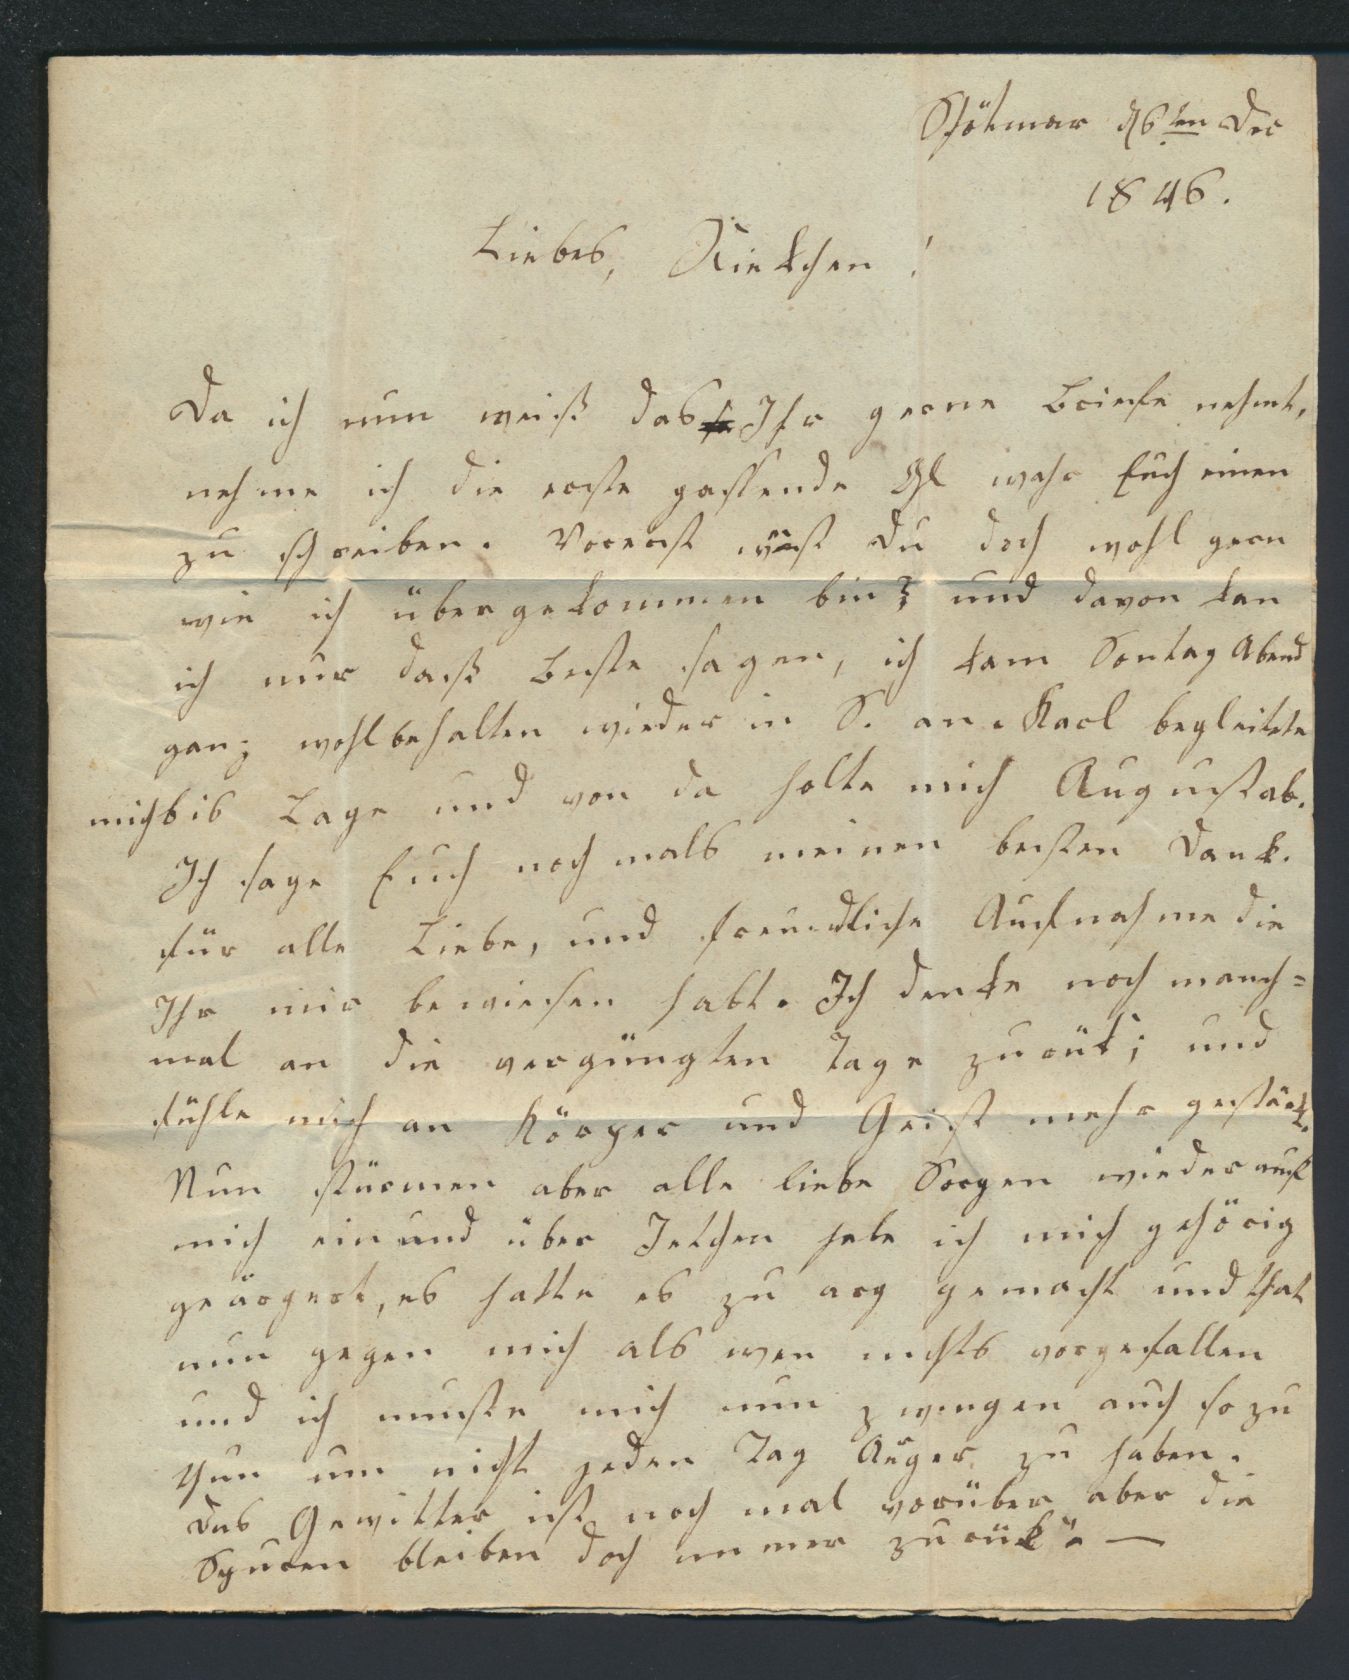 Schötmar d 6ten Dec
1846.
Liebes, Riekchen!
Da ich nun weiß das Ihr gerne Briefe nehmt,
nehme ich die erste passende wahr Euch einen
zu schreiben. Vorerst wüst Du doch wohl gern
wie ich übergekommen bin, und davon kan
ich nur daß Beste sagen, ich kam Sontag Abend
ganz wohlbehalten wieder in S. an. Karl begleitete
mich bis Lage und von da holte mich August ab.
Ich sage Euch nochmals meinen besten Dank.
für alle Liebe, und freundliche Aufnahme die
Ihr mir bewiesen habt. Ich denke noch manch=
mal an die vergüngten Tage zurük; und
fühle mich an Körper und Geist mehr gestärk.
Nun stürmen aber alle liebe Sorgen wieder auf
mich ein und über Jetchen habe ich mich gehörig
geärgert, es hatte es zu arg gemacht und that
nun gegen mich als wen nichts vorgefallen
und ich mußte mich nun zwingen auch so zu
thun um nicht jeden Tag Ärger zu haben.
Das Gewitter ist noch mal vorüber aber die
Spuren bleiben doch immer zurük. —